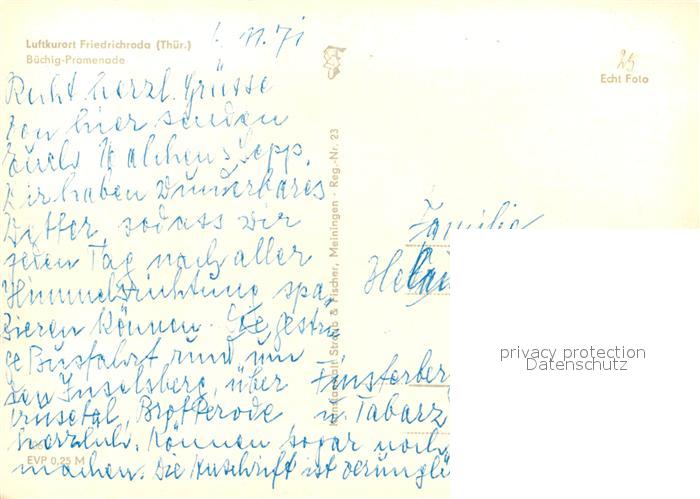 Luftkurort Friedrichroda (Thür.)
Büchig-Promenade
1. 11. 71
25
Echt Foto
Recht herzl. Grüsse
von hier senden
Euch
Sepp.
Wir haben wunderbares
Wetter, sodass wir
jeden Tag nach aller
Himmelsrichtung spa
zieren können. Die gestri
ge Busfahrt rund um
den Inselsberg, über Finsterber
Trusetal, Brotterode u. Tabarz
herrlich. Können sogar noch
machen. Die Anschrift ist verunglü
EVP 0,25 M
Straub & Fischer, Meiningen · Reg.-Nr. 23
Familie
privacy protection
Datenschutz